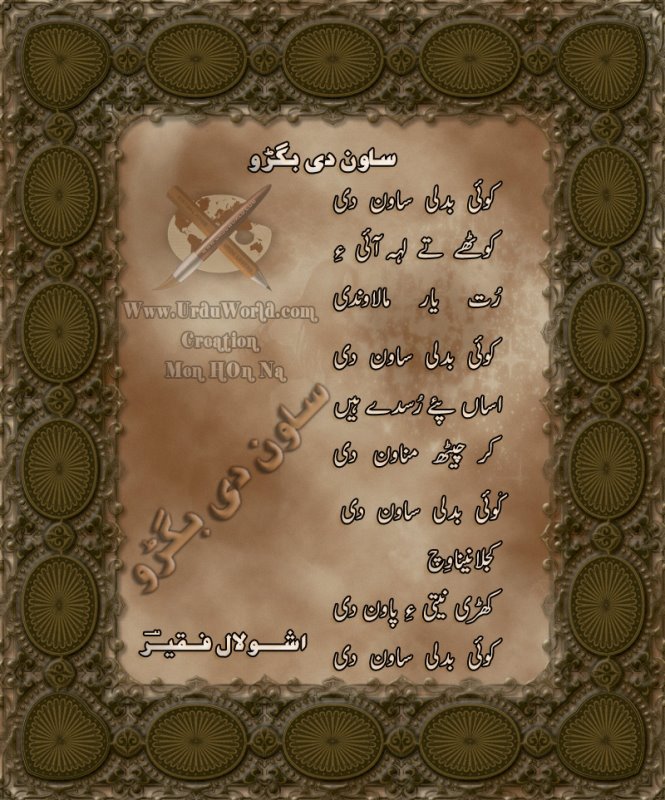 ساون دی بگڑو
کوئی بدلی ساون دی
کوٹھے تے لہہ آئی ءِ
رُت یار مالاوندی
کوئی بدلی ساون دی
اساں پئے رُسدے ہیں
کر چیٹھ مناون دی
کوئی بدلی ساون دی
کجلا نیناوچ
کھڑی نیتی ءِ پاون دی
کوئی بدلی ساون دی
اشولال فقیر
ساون دی بگڑو
Www.UrduWorld.com
Creation
Mon HOn Na